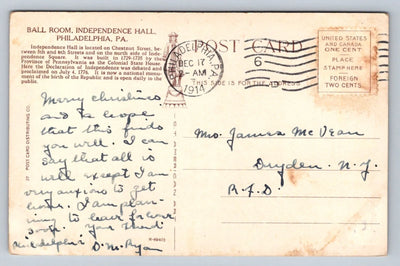 BALL ROOM, INDEPENDENCE HALL,
PHILADELPHIA, PA.
Independence Hall is located on Chestnut Street, between 5th and 6th streets and on the north side of Independence Square. It was built in 1729-1735 by the
Province of Pennsylvania as the Colonial State House
Here the Declaration of Independence was debated and
proclaimed on July 4, 1776. It is now a national monument of the birth of the Republic and is open daily to the
public.
POST CARD
PHILADELPHIA, PA.
DEC 17
-AM
1914
6
THIS SIDE IS FOR THE ADDRESS
UNITED STATES
AND CANADA
ONE CENT
PLACE
STAMP HERE
FOREIGN
TWO CENTS
POST CARD DISTRIBUTING CO.
Merry christmas
and to hope
that this finds
you well. I can
say that all is
well except I am
very anxious to get
home. I am plan-
ning to leave for
soon. Your friend
D. M. Ryan
Mrs. James McVean
Dryden. N. Y.
R.F.D